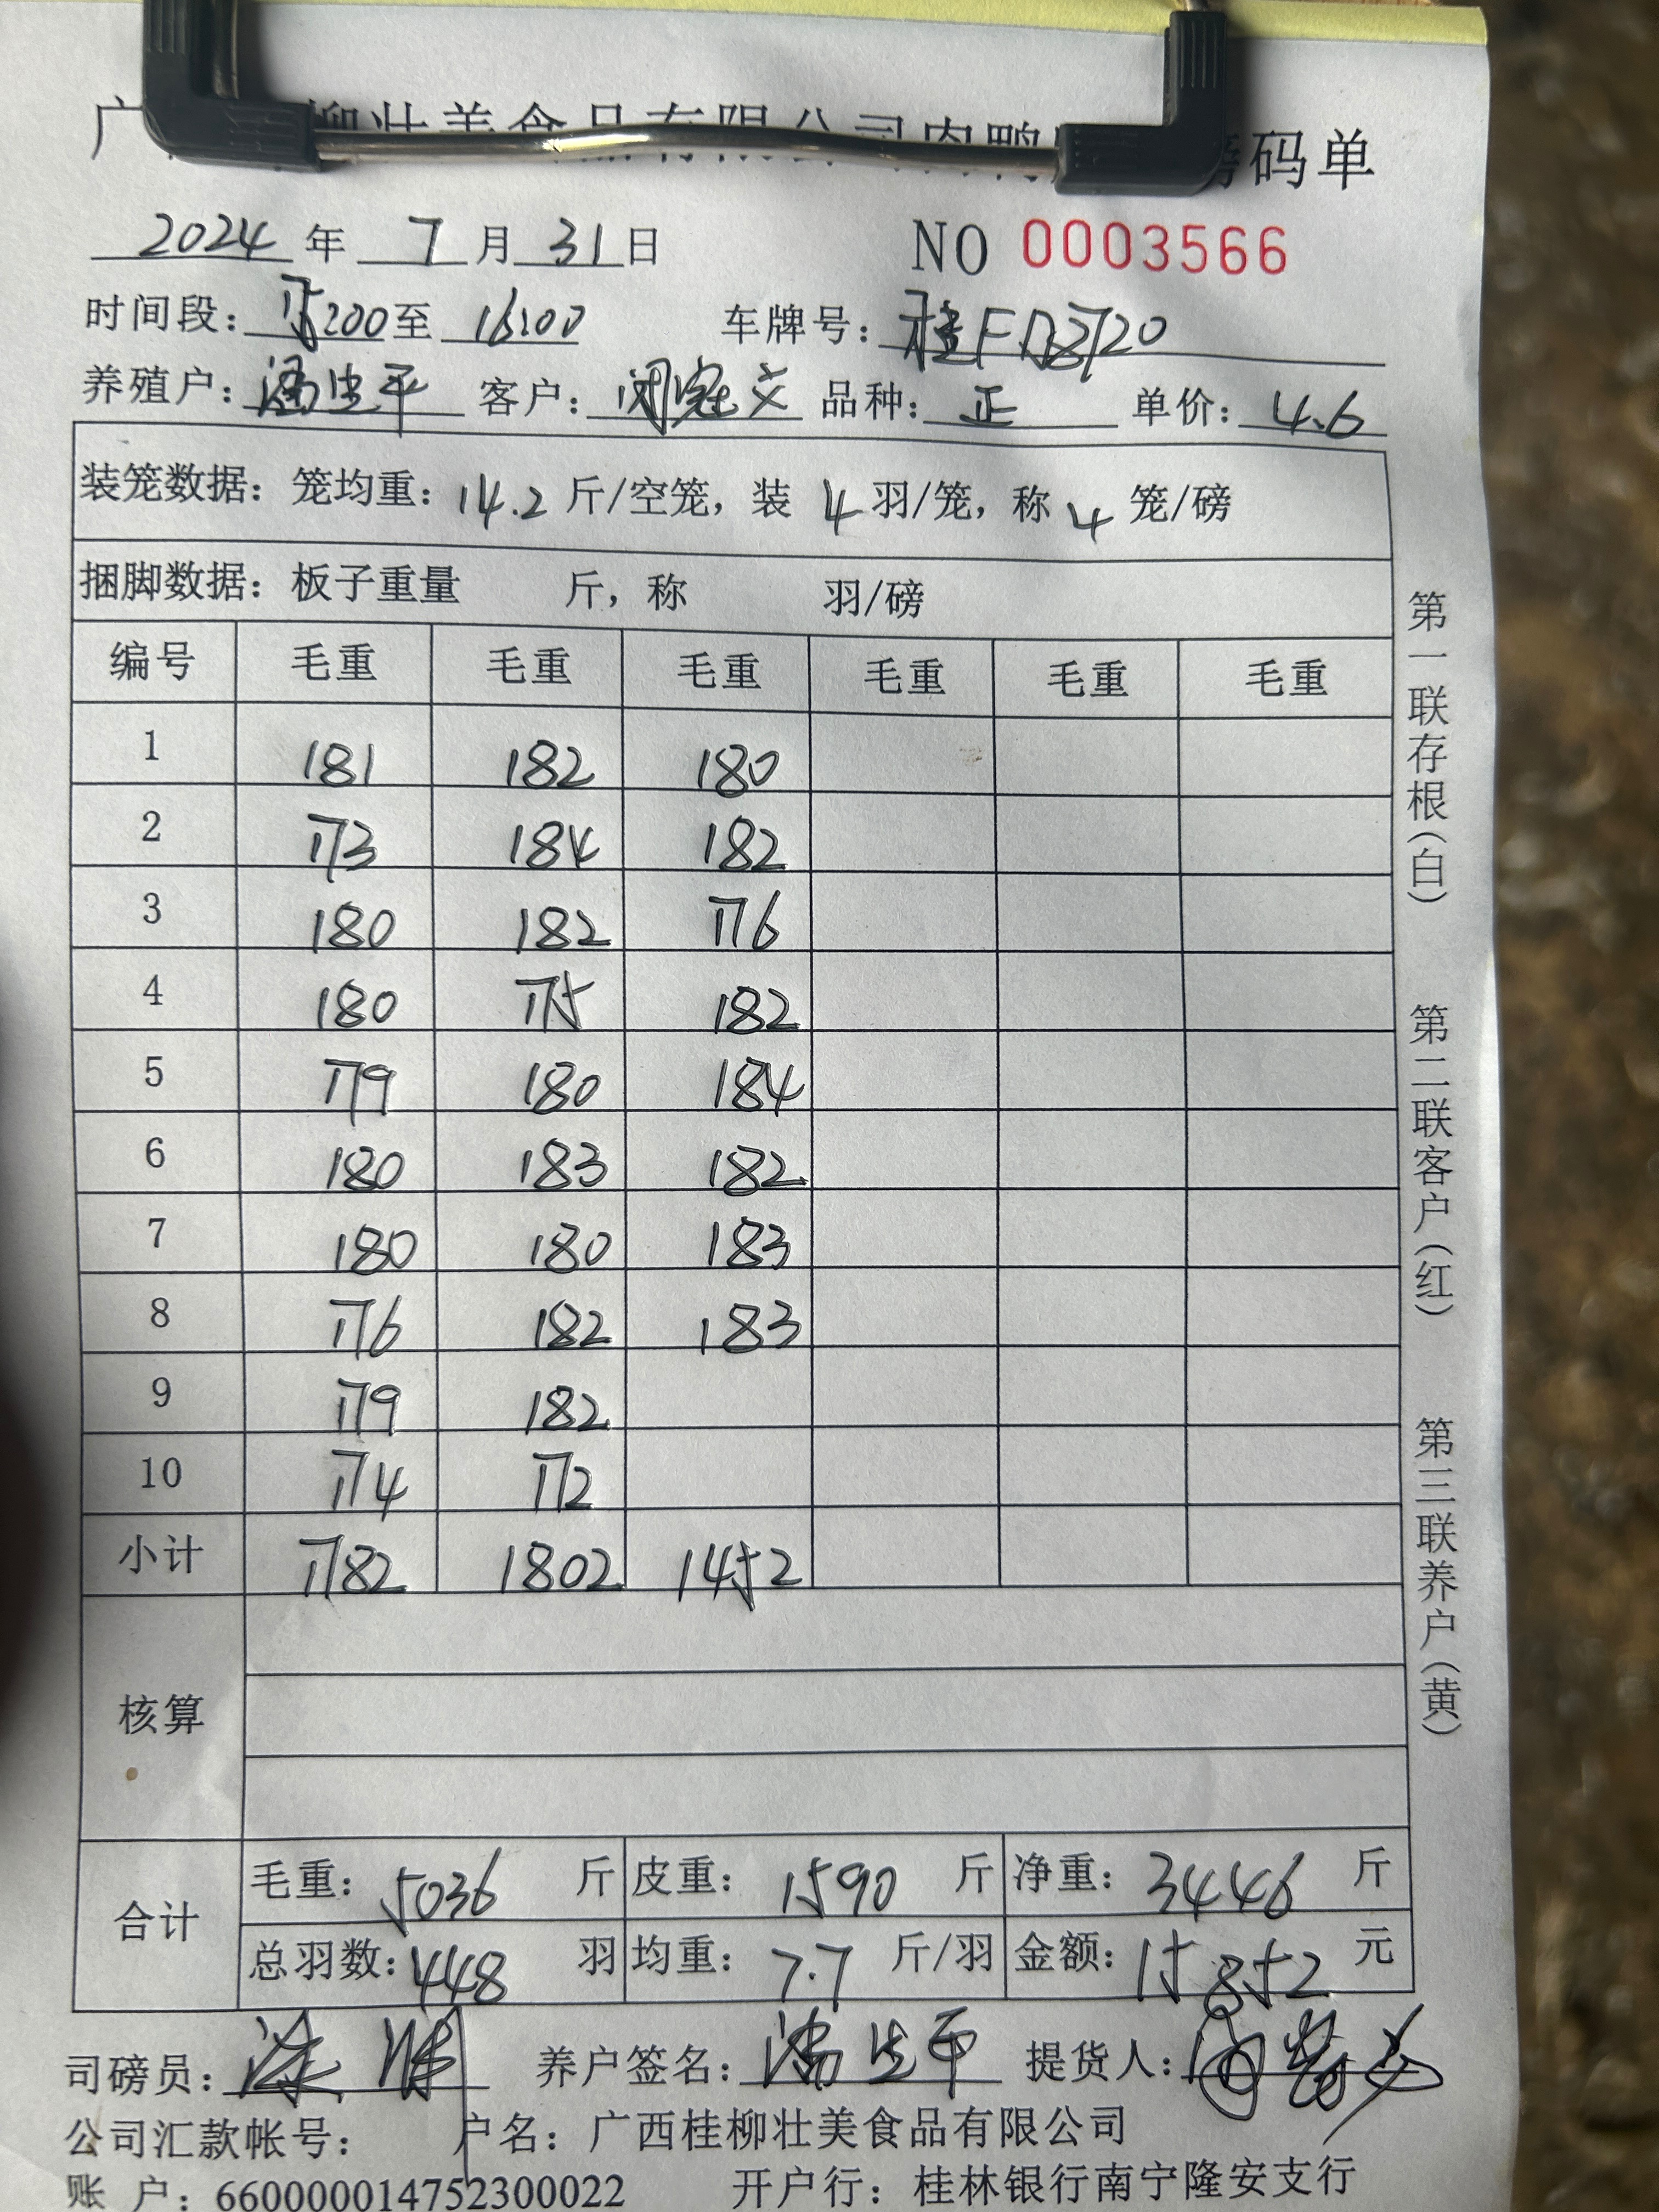 广 柳壮美食品有限公司肉鸭 磅码单
2024 年 7 月 31 日 NO 0003566
时间段: 至 16:00 车牌号: 桂F
养殖户: 平 客户: 闭 文 品种: 正 单价: 4.6
装笼数据: 笼均重: 14.2 斤/空笼, 装 4 羽/笼, 称 4 笼/磅
捆脚数据: 板子重量 斤, 称 羽/磅
编号 毛重 毛重 毛重 毛重 毛重 毛重
1 181 182 180
2 173 184 182
3 180 182 176
4 180 175 182
5 179 180 184
6 180 183 182
7 180 180 183
8 176 182 183
9 179 182
10 174 172
小计 1782 1802 1452
核算
合计
毛重: 5036 斤 皮重: 1590 斤 净重: 3446 斤
总羽数: 448 羽 均重: 7.7 斤/羽 金额: 15852 元
司磅员: 养户签名: 平 提货人:
公司汇款帐号: 户名: 广西桂柳壮美食品有限公司
账 户: 660000014752300022 开户行: 桂林银行南宁隆安支行
第一联存根(白)
第二联客户(红)
第三联养户(黄)